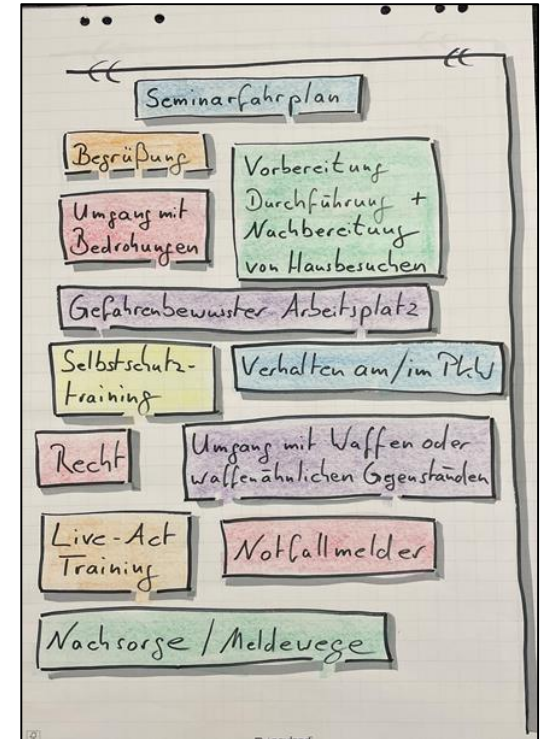 Seminarfahrplan
Begrüßung
Vorbereitung
Durchführung +
Nachbereitung
von Hausbesuchen
Umgang mit
Bedrohungen
Gefahrenbewusster Arbeitsplatz
Selbstschutz-
training
Verhalten am/im PKW
Recht
Umgang mit Waffen oder
waffenähnlichen Gegenständen
Live-Act
Training
Notfallmelder
Nachsorge / Meldewege